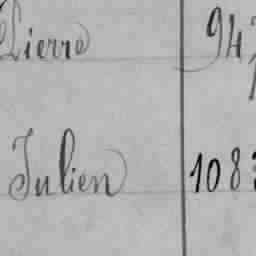 Pierre 94
Julien 108